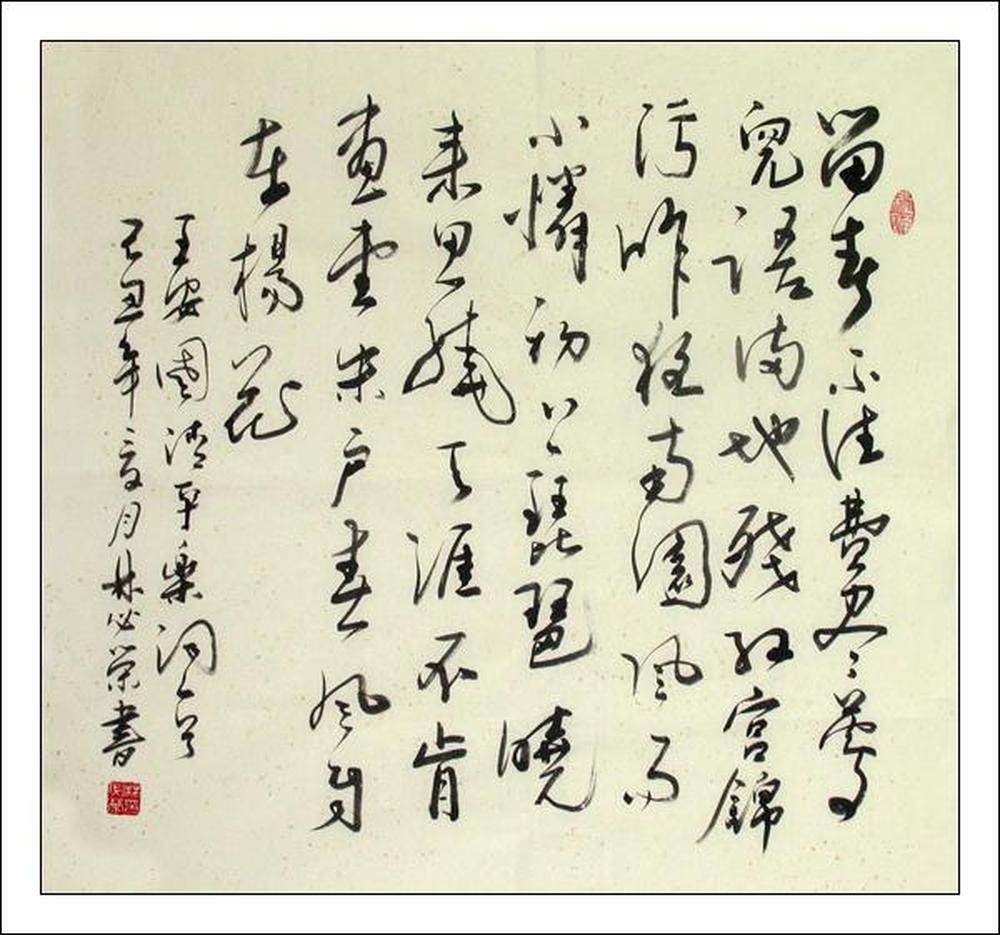 留春不住費尽鶯
兒語滿地殘紅宮錦
污昨夜南園風雨
小憐初上琵琶曉
来思繞天涯不肯
畫堂朱户春風自
在楊花
王安國清平樂詞一首
己丑年夏月林必榮書